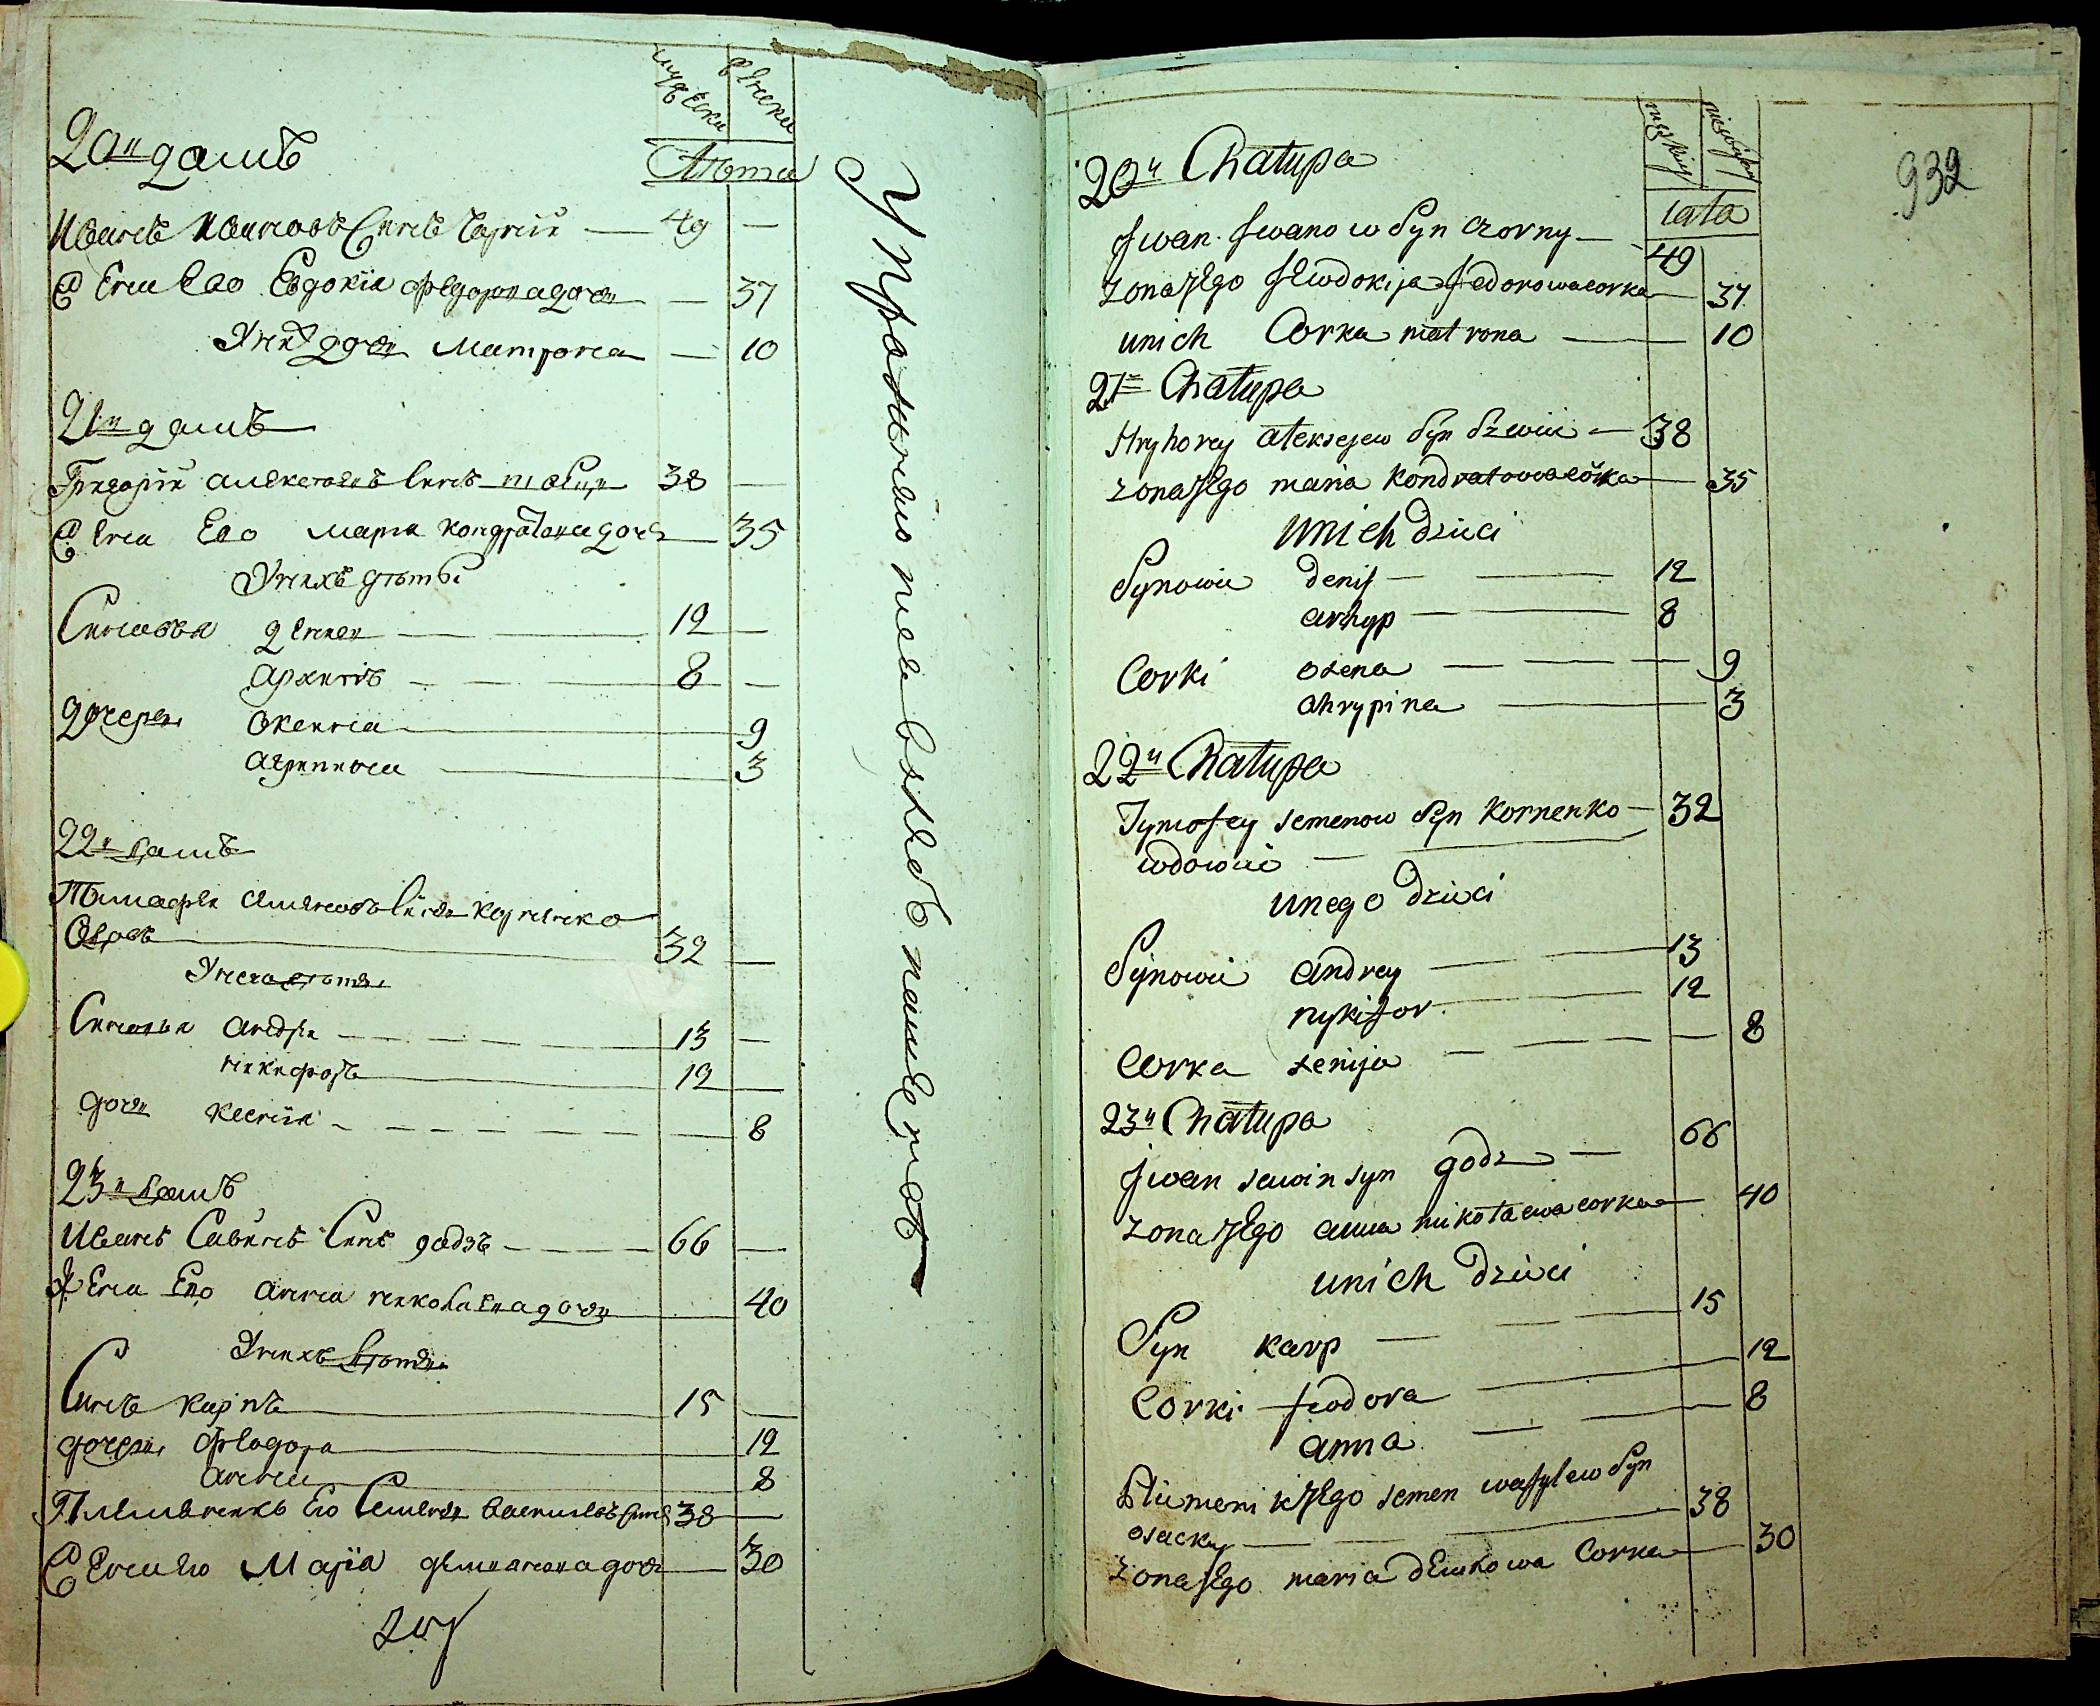 мужески женски
Лѣта
20й домъ
Иванъ Ивановъ Синъ Чорній 49
Жена Его Евдокія Федорова дочь 37
У них дочь Матрона 10
21й домъ
Григорій Алексеевъ Синъ 38
Жена Его Марія Кондратова дочь 35
У нихъ дѣти
Синовья Денисъ 12
Архипъ 8
дочери Оксения 9
Агрипина 3
22й домъ
Тимофей Семеновъ Синъ Корненко
Вдовъ 32
У него дѣти
Синовья Андрей 13
Никифоръ 12
дочь Ксенія 8
23й домъ
Иванъ Савинъ Синъ Годзь 66
Жена Его Анна Николаева дочь 40
У нихъ дѣти
Синъ Карпъ 15
дочери Феодора 12
Анна 8
Племенникъ Его Семенъ Василевъ Синъ 38
Жена Его Марія Демянова дочь 30
932
męzkiey niewiesciey
lata
20ta Chałupa
Jwan Jwanow Syn Czorny 49
Zona Jego Jewdokija Fedorowa corka 37
u nich Corka matrona 10
21sza Chałupa
Hryhorey alexejew Syn 38
Zona Jego maria Kondratowa corka 35
u nich dzieci
Synowie denis 12
arhyp 8
Corki oxena 9
ahrypina 3
22a Chałupa
Tymofey semenow Syn Kornenko 32
wdowiec
u nego dzieci
Synowie andrey 13
nykifor 12
Corka xenija 8
23a Chałupa
Jwan sawin syn godz 66
Zona Jego anna nikołaewa corka 40
u nich dzieci
Syn karp 15
Corki feodora 12
anna 8
Pliemenik Jego semen wasylew Syn
osacky 38
Zona Jego maria demkowa Corka 30